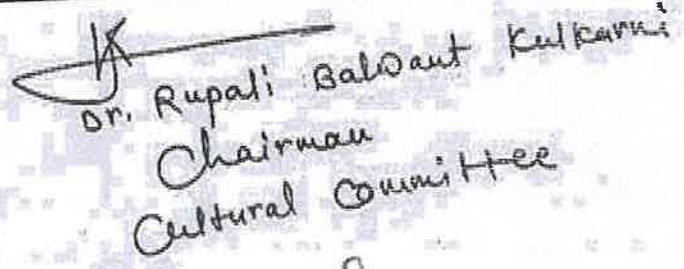 Dr. Rupali Balwant Kulkarni
Chairman
Cultural Committee